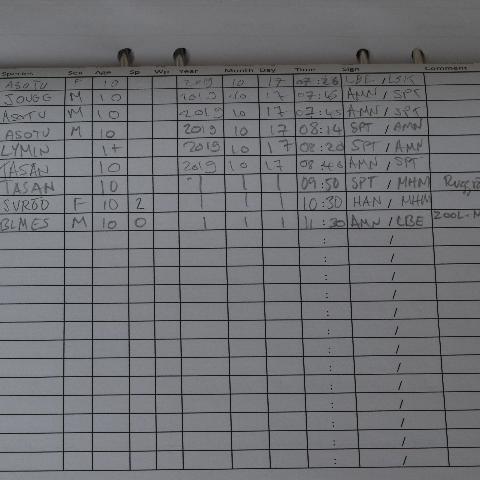 Species Sex Age Sp Wp Year Month Day Time Sign Comment
ASOTU F 10 2019 10 17 07:26
JOUGG M 10 2019 10 17 07:45 AMN / SPT
ASOTU M 10 2019 10 17 07:45 AMN / SPT
ASOTU M 10 2019 10 17 08:14 SPT / AMN
LYMIN 1+ 2019 10 17 08:20 SPT / AMN
TASAN 10 2019 10 17 08:40 AMN / SPT
TASAN 10 | | | 09:50 SPT / MHM
SVROD F 10 2 | | | 10:30 HAN / MHM
BLMES M 10 0 | | | 11:30 AMN / LBE ZOOL-M
: /
: /
: /
: /
: /
: /
: /
: /
: /
: /
: /
: /
: /